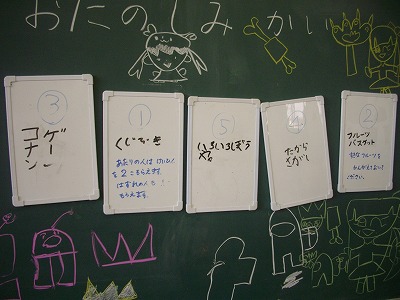 おたのしみかい
③
コナン
ゲーム
①
くじびき
あたりの人は けいひん
を2こもらえます。
はずれの人も1こ
もらえます。
⑤
いろいろしぼう
④
たから
さがし
②
フルーツ
バスケット
好きなフルーツを
かんがえておいて
ください。